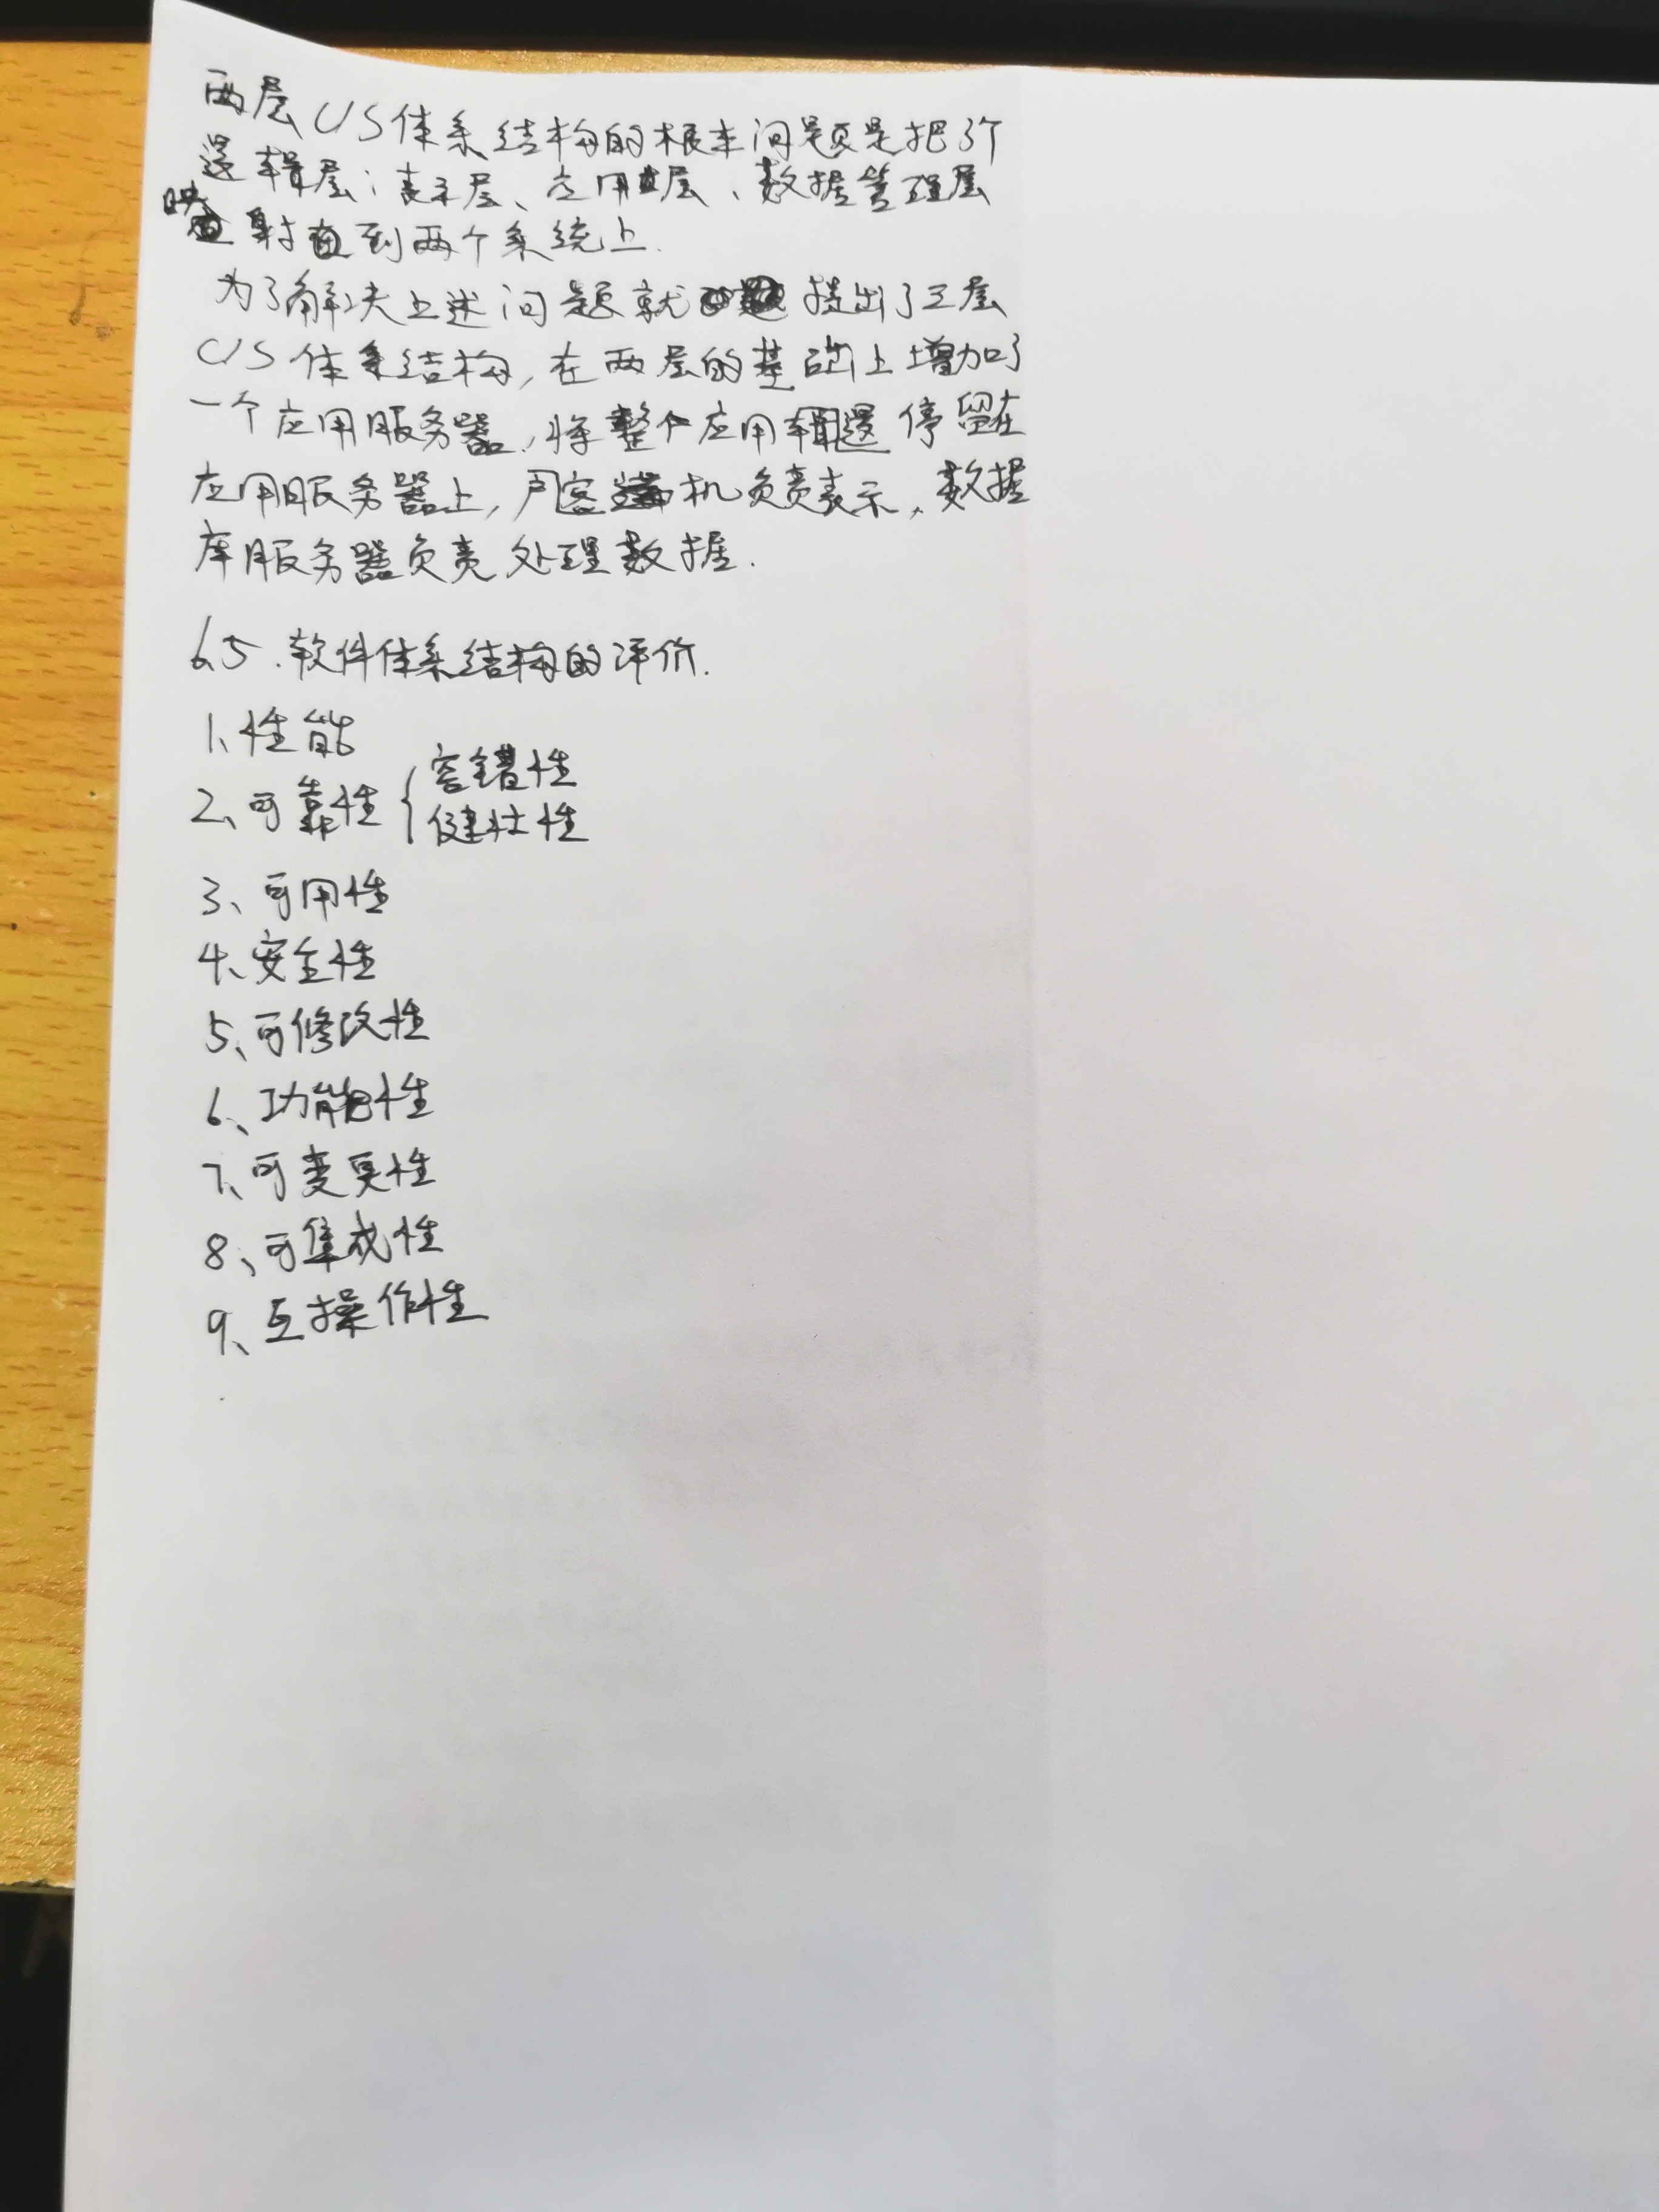 两层C/S体系结构的根本问题是把3个
逻辑层:表示层、应用层、数据管理层
映射到两个系统上.
为了解决上述问题就提出了三层
C/S体系结构,在两层的基础上增加了
一个应用服务器,将整个应用逻辑停留在
应用服务器上,客端机负责表示,数据
库服务器负责处理数据.
6.5.软件体系结构的评价.
1、性能
2、可靠性{容错性
健壮性
3、可用性
4、安全性
5、可修改性
6、功能性
7、可变更性
8、可集成性
9、互操作性